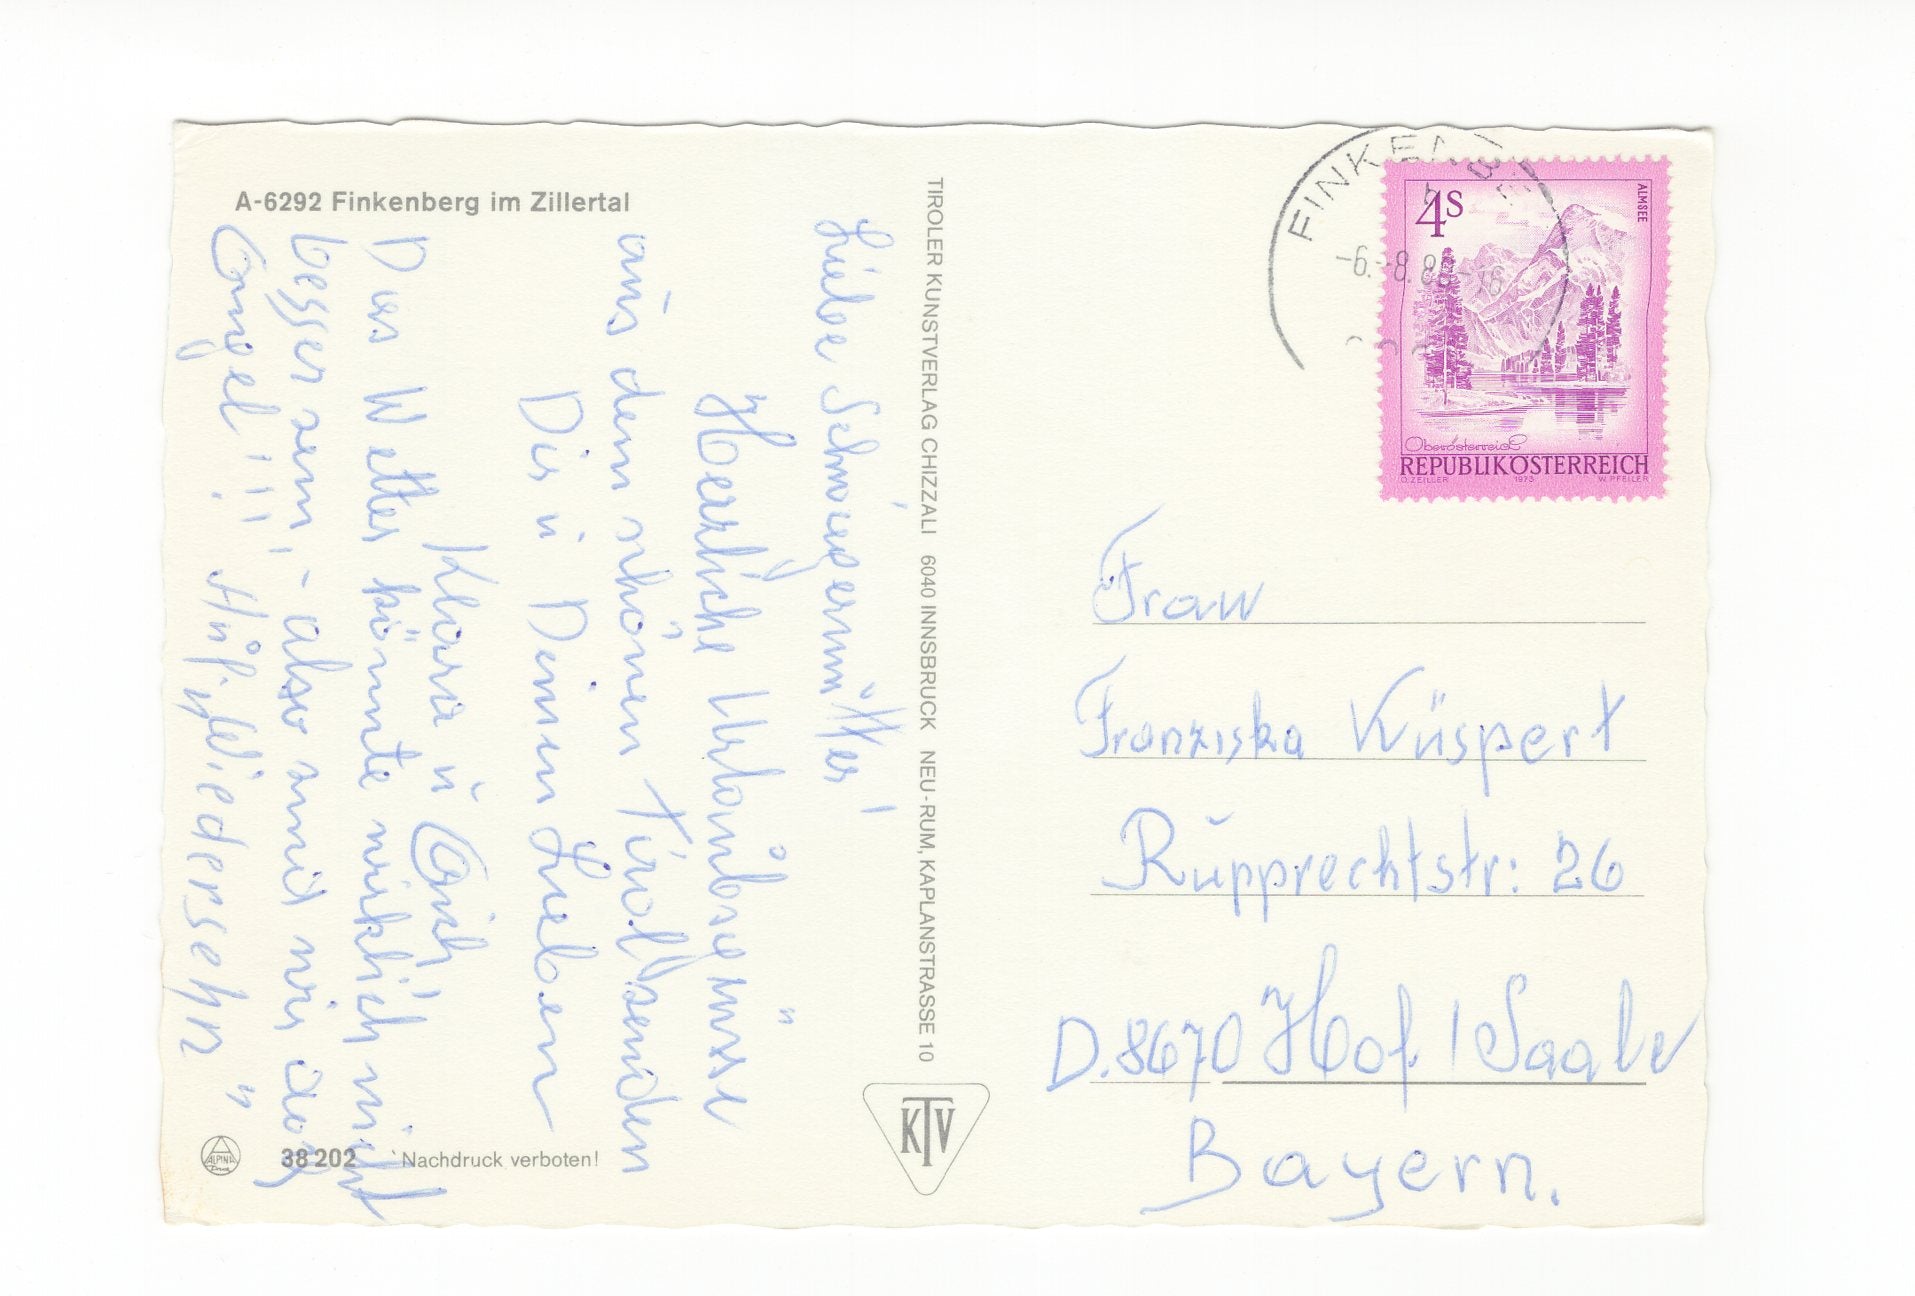 A-6292 Finkenberg im Zillertal
Liebe Schwiegermutter!
Herzliche Urlaubsgrüsse
aus dem schönen Tirol senden
Dir u Deinen Lieben
Klara u Erich!
Das Wetter könnte wirklich nicht
besser sein! - also sind wir doch
Engel!!! Auf Wiedersehn"
38 202
Nachdruck verboten!
TIROLER KUNSTVERLAG CHIZZALI 6040 INNSBRUCK NEU-RUM, KAPLANSTRASSE 10
KTV
ALPINA
FINKENBE
-6.-8.88-16
4S
ALMSEE
Oberösterreich
REPUBLIK ÖSTERREICH
O. ZEILLER 1973 W. PFEILER
Frau
Franziska Küspert
Rupprechtstr: 26
D.8670 Hof / Saale
Bayern.